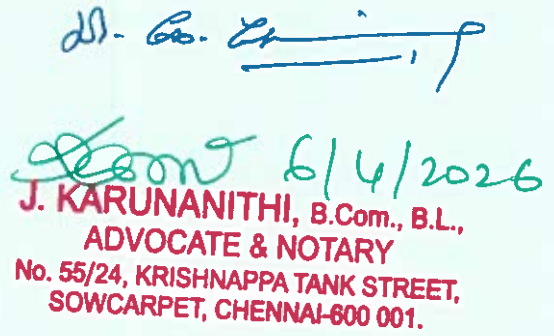 6/4/2026
J. KARUNANITHI, B.Com., B.L.,
ADVOCATE & NOTARY
No. 55/24, KRISHNAPPA TANK STREET,
SOWCARPET, CHENNAI-600 001.